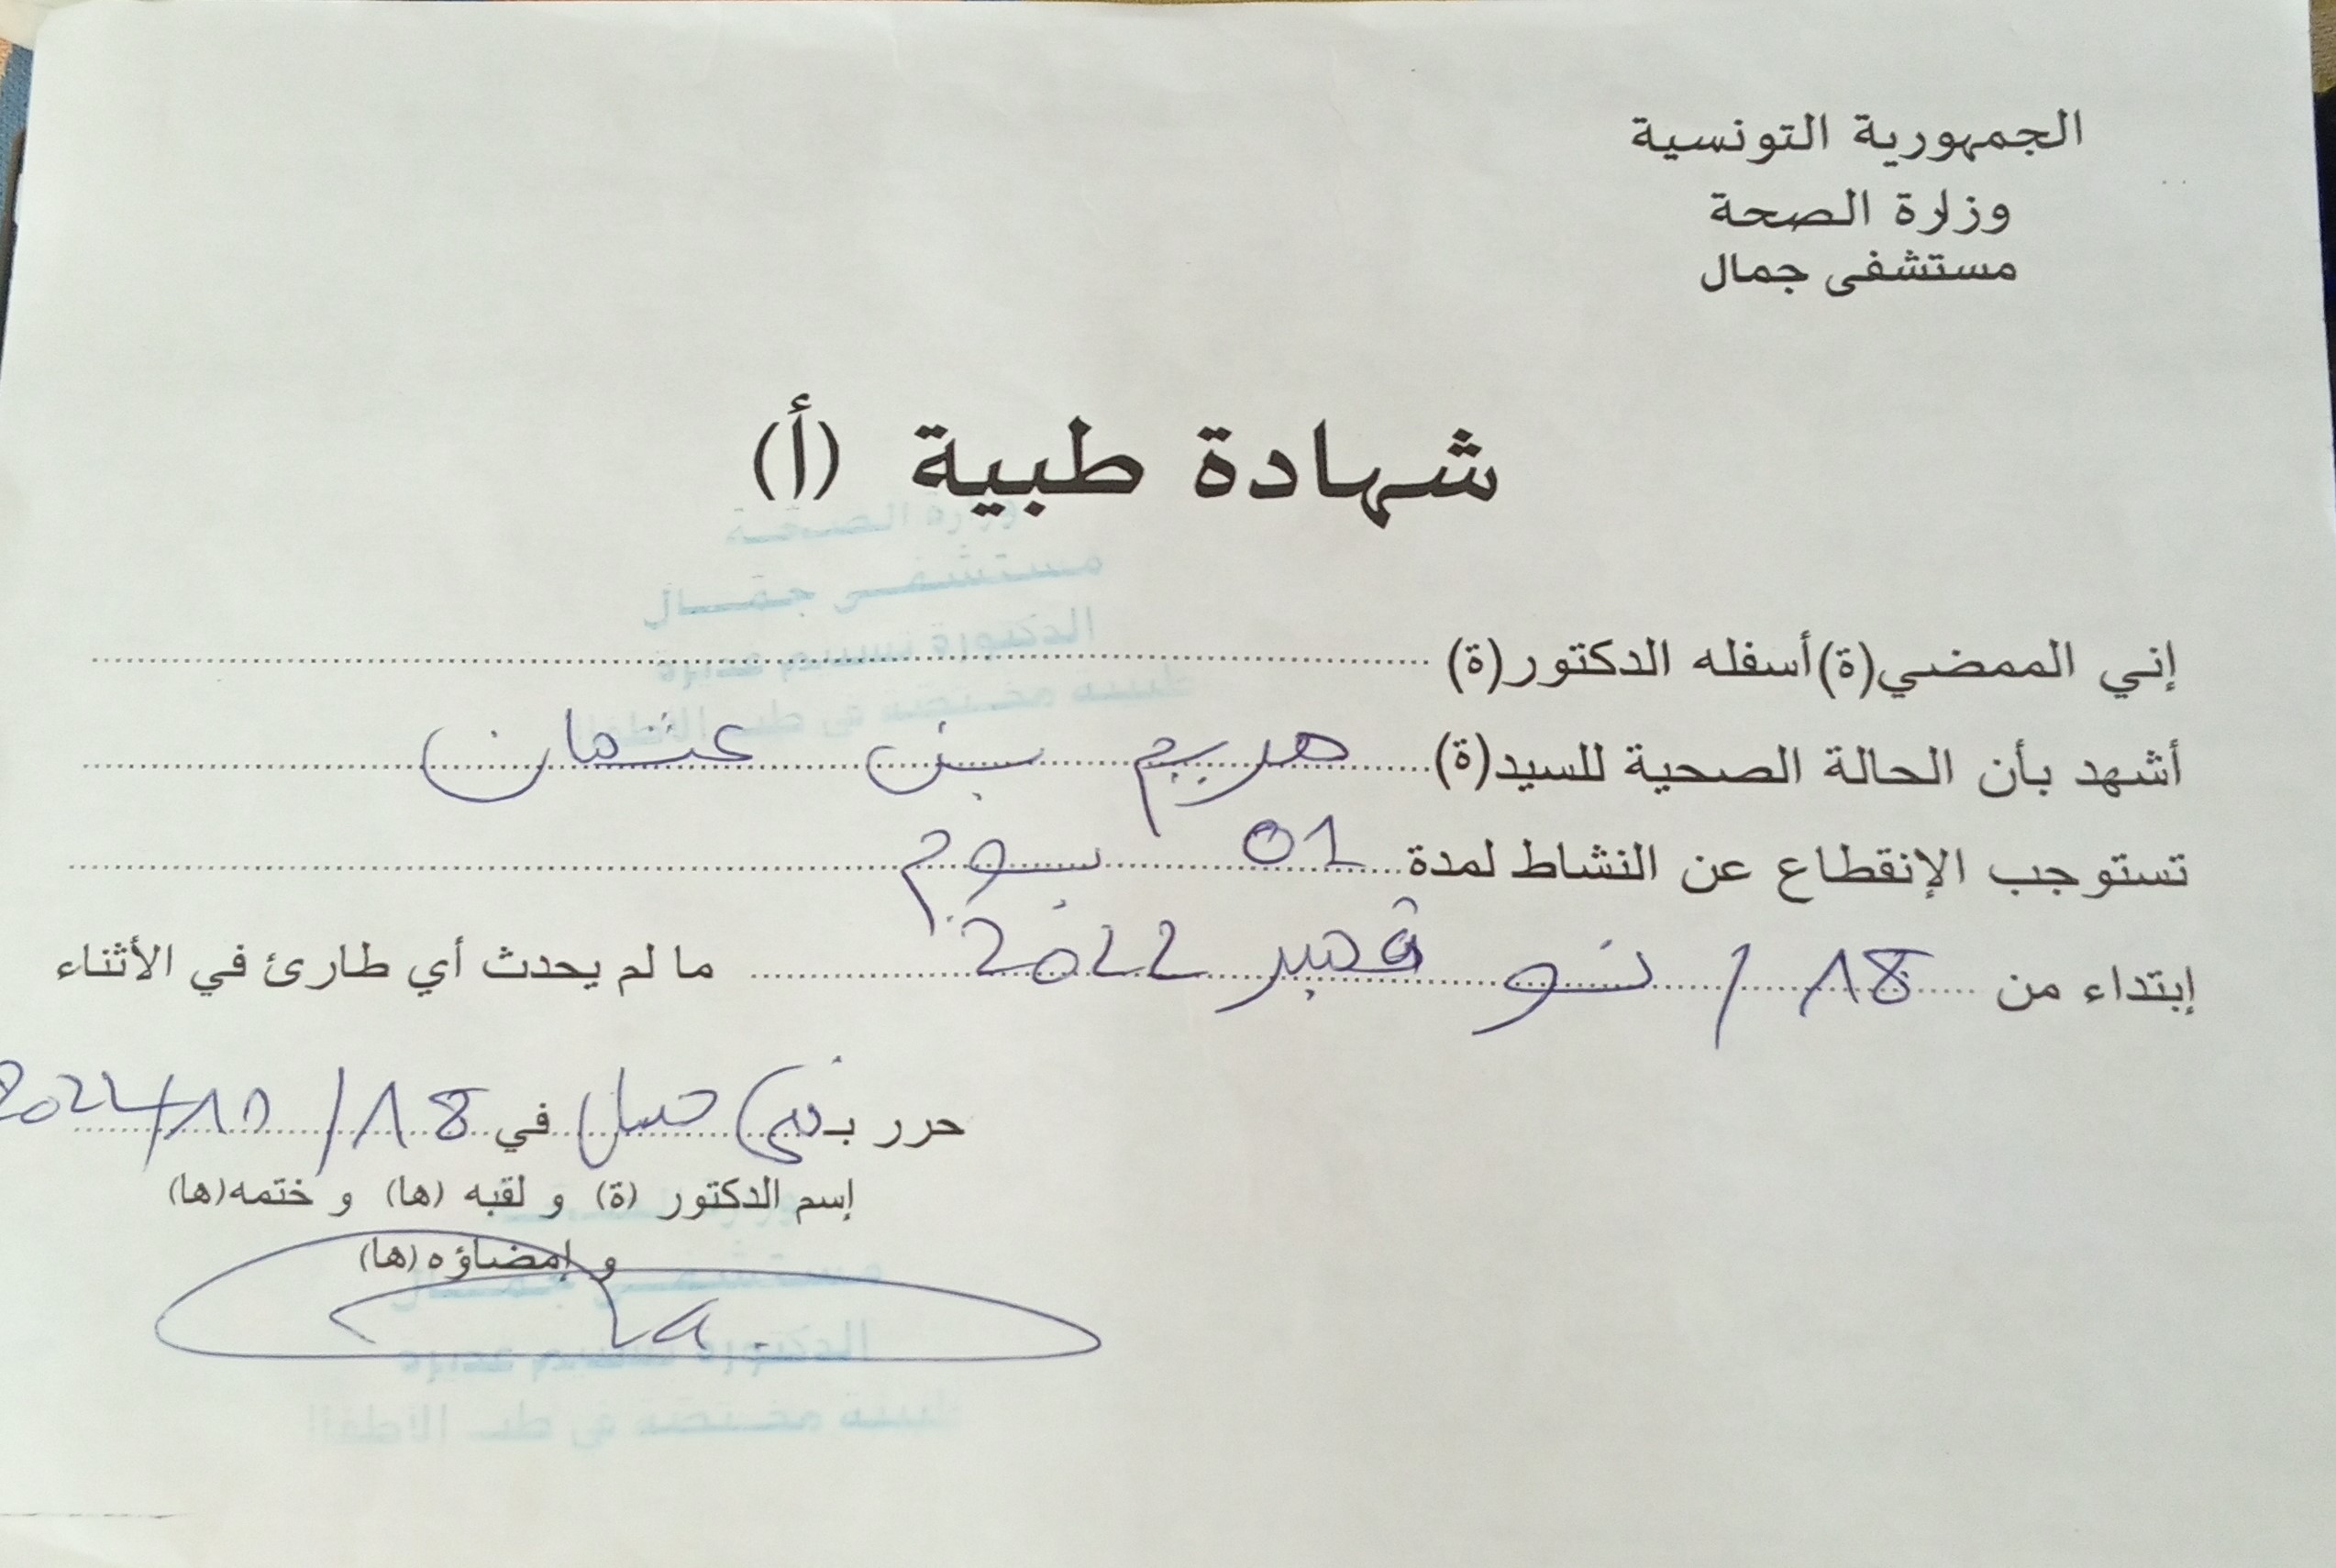 الجمهورية التونسية
وزارة الصحة
مستشفى جمال
شهادة طبية (أ)
وزارة الصحة
مستشفى جمال
الدكتورة نسيم عميرة
طبيبة مختصة في طب الأطفال
إني الممضي(ة) أسفله الدكتور(ة)
أشهد بأن الحالة الصحية للسيد(ة) مريم بن عثمان
تستوجب الإنقطاع عن النشاط لمدة 01 يوم
إبتداء من 18 / نوفمبر 2022 ما لم يحدث أي طارئ في الأثناء
حرر بـ في 18/11/2022
إسم الدكتور (ة) و لقبه (ها) و ختمه(ها)
و إمضاؤه (ها)
مستشفى جمال
الدكتورة نسيم عميرة
طبيبة مختصة في طب الأطفال